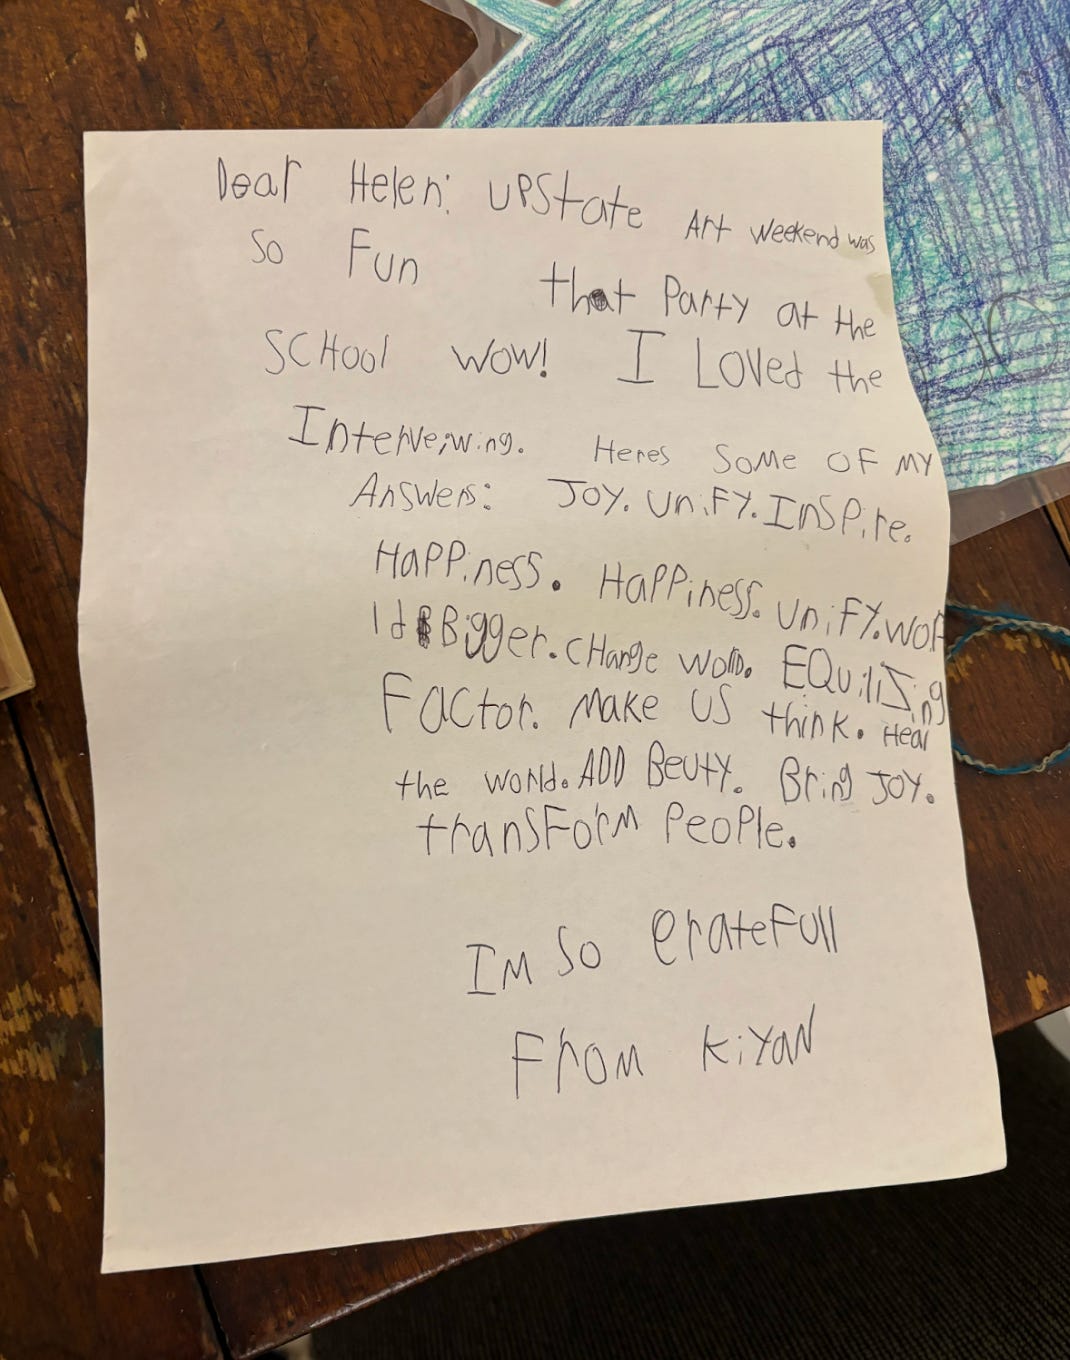 Dear Helen: UPState Art Weekend was
so Fun that Party at the
SCHool wow! I Loved the
Interveiwing. Heres Some OF MY
Answers: JOY. UniFY. InSPire.
HaPPiness. HaPPiness. UniFY. wor
ld Bigger. CHange world. EQuiliZing
FACtor. Make US think. Heal
the world. ADD BeUtY. Bring JOY.
transForM PeoPle.
IM So GrateFull
From KiYaN